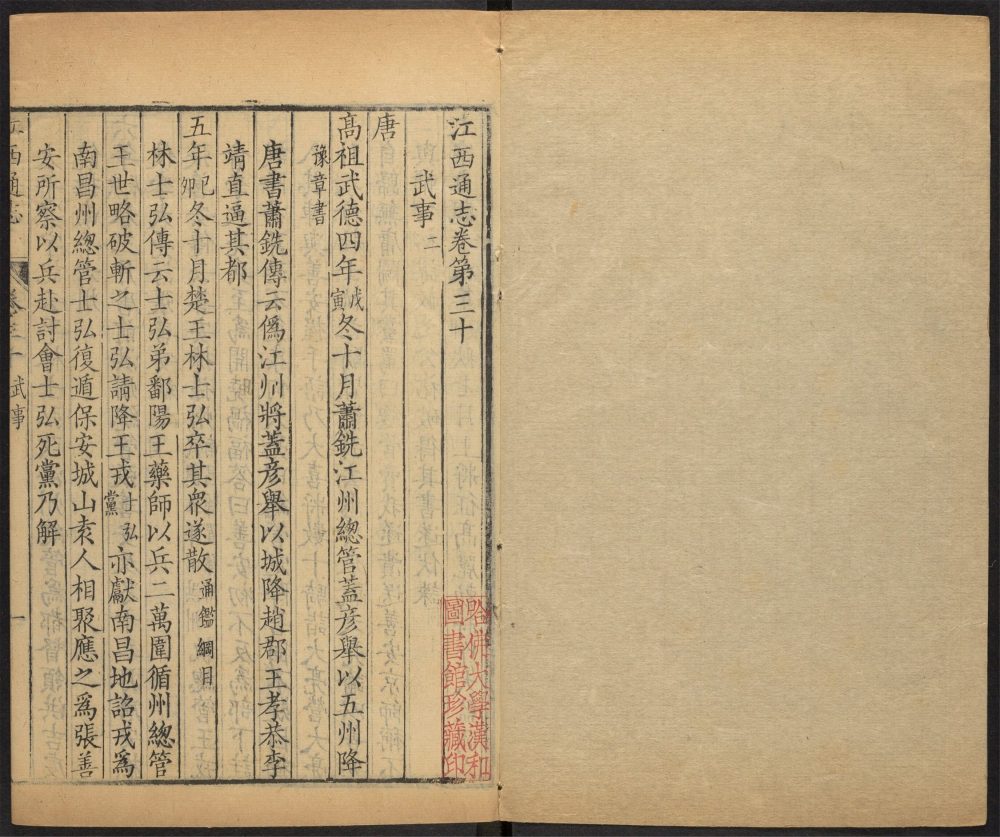 江西通志卷第三十
武事二
唐
高祖武德四年戊寅冬十月蕭銑江州總管蓋彦舉以五州降
豫章書
唐書蕭銑傳云僞江州將蓋彦舉以城降趙郡王孝恭李
靖直逼其都
五年己卯冬十月楚王林士弘卒其衆遂散通鑑綱目
林士弘傳云士弘弟鄱陽王藥師以兵二萬圍循州總管
王世略破斬之士弘請降王戎士弘黨亦獻南昌地詔戎爲
南昌州總管士弘復遁保安城山袁人相聚應之爲張善
安所察以兵赴討會士弘死黨乃解
江西通志
卷三十 武事
一
哈佛大學漢和
圖書館珍藏印